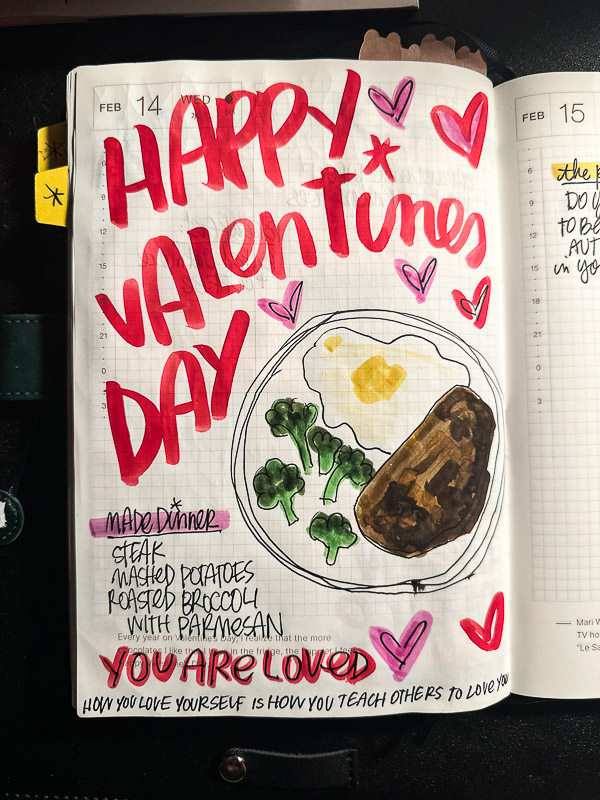 FEB 14 WED
HAPPY
VALENTINES
DAY
6
9
12
15
21
0
3
MADE DINNER
STEAK
MASHED POTATOES
ROASTED BROCCOLI
WITH PARMESAN
Every year on Valentine's Day, I realize that the more
chocolates I like in the fridge, the
YOU ARE LOVED
HOW YOU LOVE YOURSELF IS HOW YOU TEACH OTHERS TO LOVE YOU
FEB 15
the p
DO Y
TO BE
AUT
in yo
6
9
12
15
18
21
0
3
— Mari W
TV ho
"Le Sa